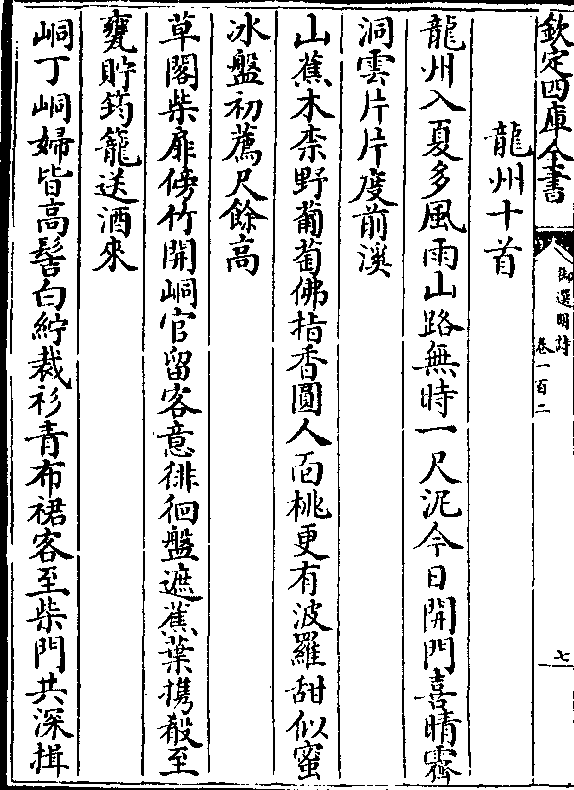 欽定四庫全書
御選明詩
卷一百二
七
龍州十首
龍州入夏多風雨山路無時一尺泥今日開門喜晴霽
洞雲片片度前溪
山蕉木柰野葡萄佛指香圓人面桃更有波羅甜似蜜
冰盤初薦尺餘高
草閣柴扉傍竹開峒官留客意徘徊盤遮蕉葉携殽至
甕貯筠籠送酒來
峒丁峒婦皆高髻白紵裁衫青布裙客至柴門共深揖